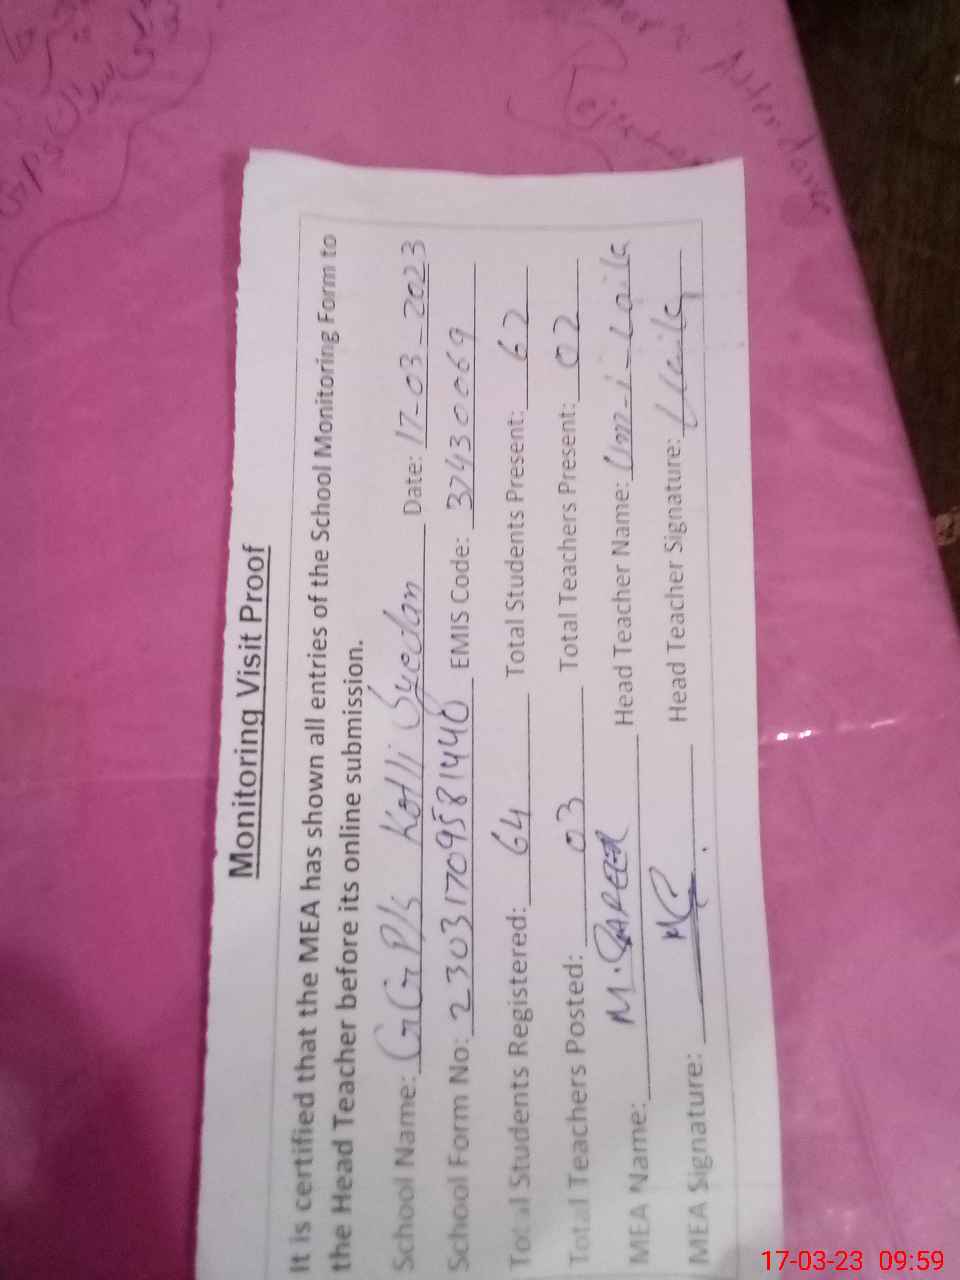 Monitoring Visit Proof
It is certified that the MEA has shown all entries of the School Monitoring Form to
the Head Teacher before its online submission.
School Name: GGP/s Kotli Syedan Date: 17-03-2023
School Form No: 2303170958144 EMIS Code: 37430069
Total Students Registered: 64 Total Students Present: 62
Total Teachers Posted: 03 Total Teachers Present: 02
MEA Name: M. Head Teacher Name: Um-i-Laila
MEA Signature: Head Teacher Signature: Laila
Attendance
17-03-23 09:59